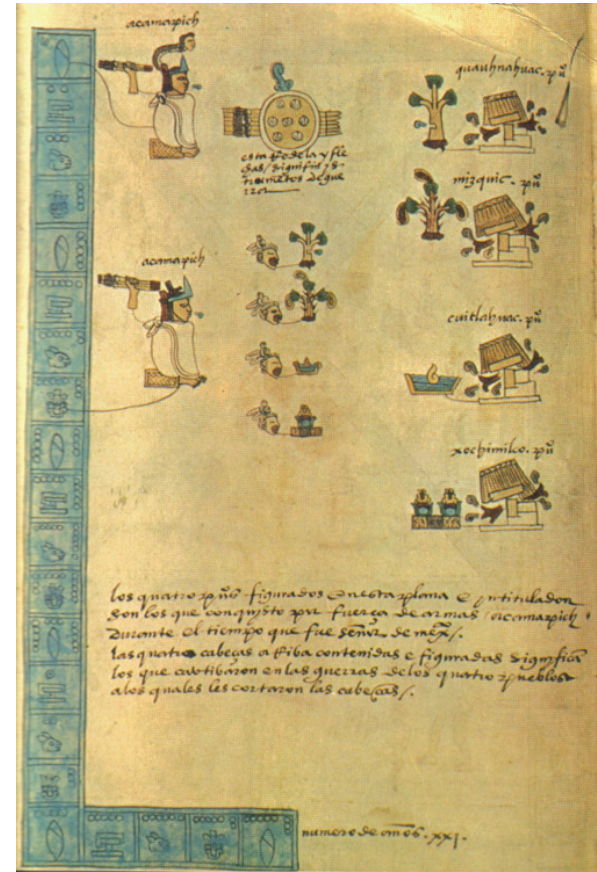 acamapich
quauhnahuac. pu͂
esta rrodela y fle
chas / significa ynS
trumētos de gue
rra
mizquic. pu͂
acamapich
cuitlahuac. pu͂
xochimilco. pu͂
los quatro pu͂s figurados en esta plana e yntitulados
son los que conquisto por fuerça de armas / acamapich.
Durante el tiempo que fue señor de mexᵒ/.
las quatro cabeças aRiba contenidas e figuradas significā
los que cautibaron en las guerras de los quatro pueblos
alos quales les cortaron las cabeças/.
numero de años. xxj.